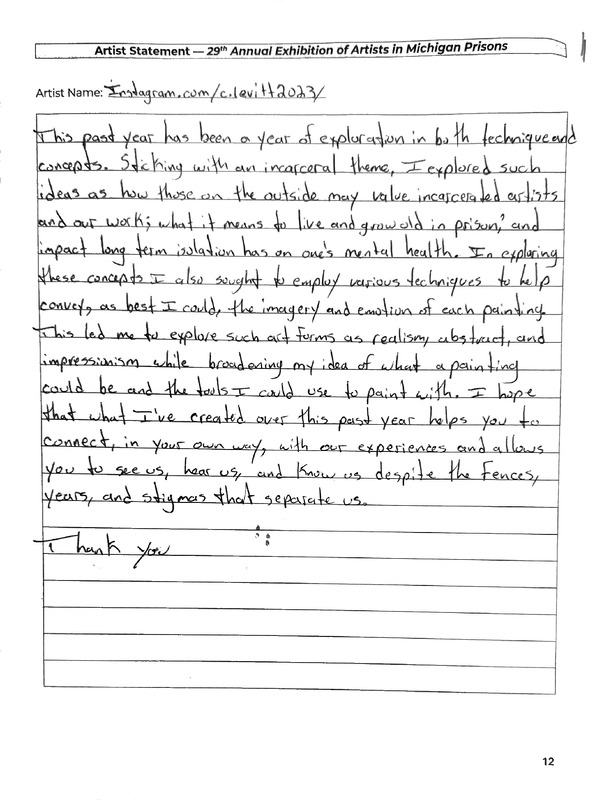 Artist Statement — 29th Annual Exhibition of Artists in Michigan Prisons
Artist Name: Instagram.com/c.levitt2023/
This past year has been a year of exploration in both technique and
concepts. Sticking with an incarceral theme, I explored such
ideas as how those on the outside may value incarcerated artists
and our work; what it means to live and grow old in prison; and
impact long term isolation has on one's mental health. In exploring
these concepts I also sought to employ various techniques to help
convey, as best I could, the imagery and emotion of each painting.
This led me to explore such art forms as realism, abstract, and
impressionism while broadening my idea of what a painting
could be and the tools I could use to paint with. I hope
that what I've created over this past year helps you to
connect, in your own way, with our experiences and allows
you to see us, hear us, and know us despite the fences,
years, and stigmas that separate us.
Thank you
12